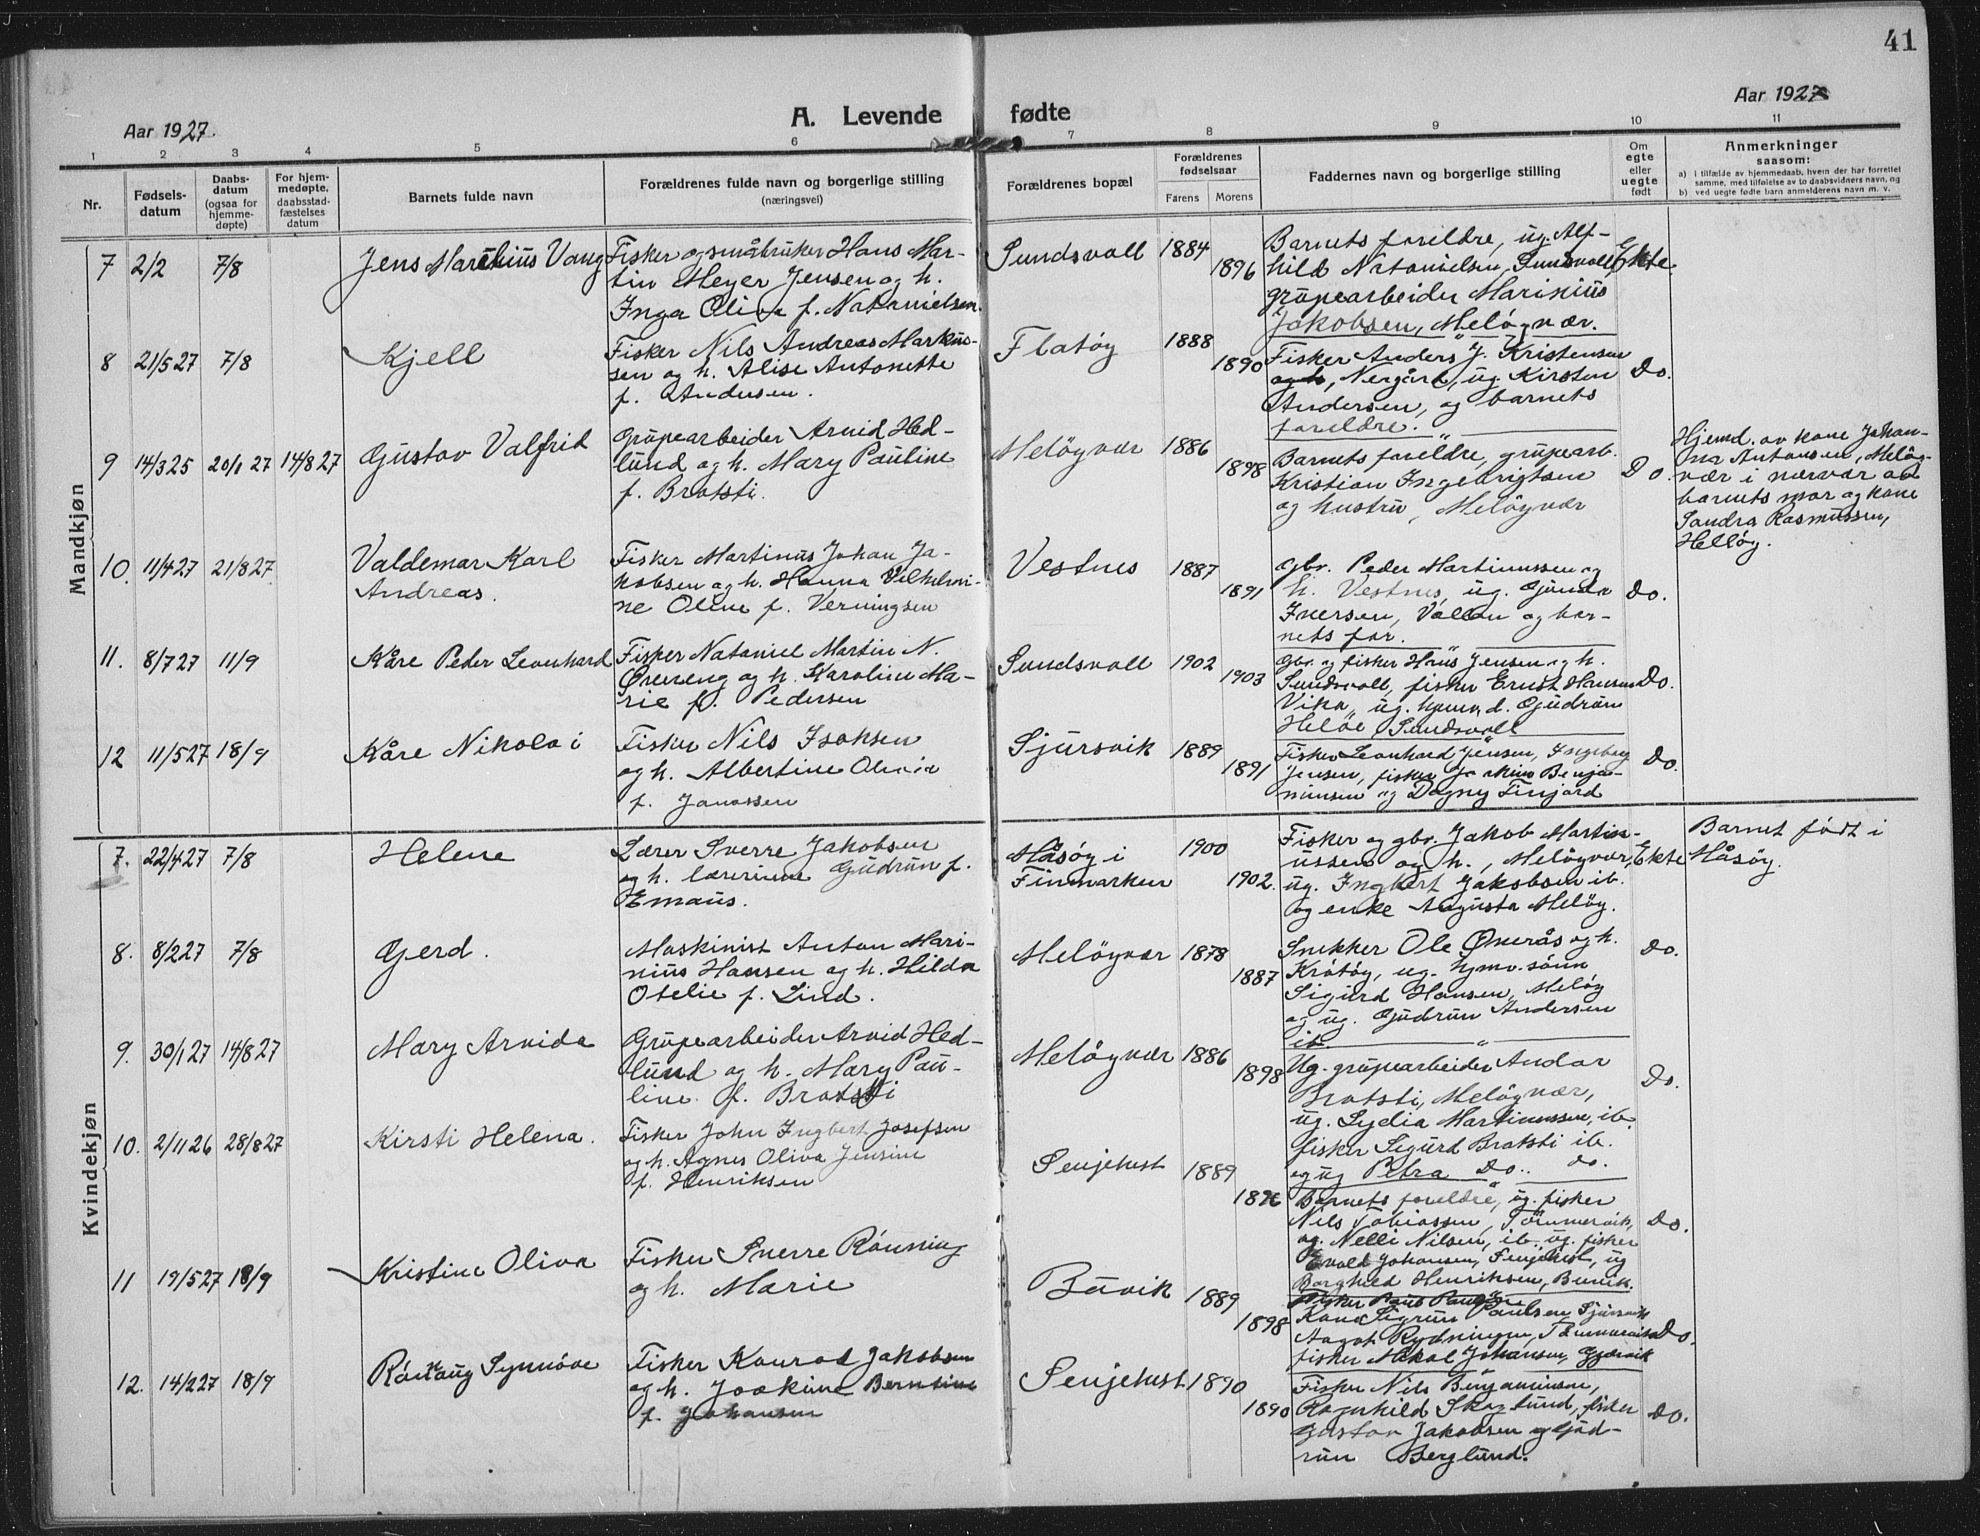 41
Aar 1927.
A. Levende fødte
Aar 1927
1 2 3 4 5 6 7 8 9 10 11
Nr.
Fødsels-
datum
Daabs-
datum
(ogsaa for
hjemme-
døpte)
For hjem-
medøpte,
daabsstad-
fæstelses
datum
Barnets fulde navn
Forældrenes fulde navn og borgerlige stilling
(næringsvei)
Forældrenes bopæl
Forældrenes
fødselsaar
Farens Morens
Faddernes navn og borgerlige stilling
Om
egte
eller
uegte
født
Anmerkninger
saasom:
a) i tilfælde av hjemmedaab, hvem der har forrettet
samme, med tilføielse av to daabsvidners navn, og
b) ved uegte fødte barn anmelderens navn m. v.
Mandkjøn
7 2/2 7/8
Jens Marelius Vang
Fisker og småbruker Hans Mar-
tin Meyer Jensen og h.
Inga Oliva f. Natanielsen.
Sundsvoll 1884
1896
Barnets forældre, ug. Alf-
hild Natanielsen, Sundsvoll,
grubearbeider Marinius
Jakobsen, Meløyvær.
Ekte
8 21/5 27 7/8
Kjell
Fisker Nils Andreas Markus-
sen og h. Alise Antonette
f. Andersen.
Flatøy 1888
1890
Fisker Anders J. Kristensen
og h, Nergård, ug. Kirsten
Andersen, og barnets
foreldre.
Do.
9 14/3 25 20/1 27 14/8 27
Gustav Valfrid
Grubearbeider Arvid Hed-
lund og h. Mary Pauline
f. Bratsti.
Meløyvær 1886
1898
Barnets foreldre, grubearb.
Kristian Ingebrigtsen
og hustru, Meløyvær
Do.
Hjemd. av kone Johan-
na Antonsen, Meløy-
vær i nærvær av
barnets mor og kone
Sandra Rasmussen,
Helløy.
10. 11/4 27 21/8 27
Valdemar Karl
Andreas.
Fisker Martinus Johan Ja-
kobsen og h. Hanna Vilhelmi-
ne Oline f. Verningsen
Vestnes 1887
1891
Gbr. Peder Martinussen og
h. Vestnes, ug. Gunda
Iversen, Vollen og bar-
nets far.
Do.
11. 8/7 27 11/9
Kåre Peder Leonhard
Fisker Nataniel Martin N.
Øvereng og h. Karoline Ma-
rie f. Pedersen
Sundsvoll 1902
1903
Gbr. og fisker Hans Jensen og h.
Sundsvoll, fisker Ernst Hansen
Vika, ug. hjemv. d. Gudrun
Heløe, Sundsvoll
Do.
12 11/5 27 18/9
Kåre Nikolai
Fisker Nils Isaksen
og h. Albertine
f. Janossen
Sjursvik 1889
1891
Fisker Leonhard Jensen, Ingeborg
Jensen, fisker Joakim Benja-
minsen og Dagny Finjord
Do.
Kvindekjøn
7. 22/4 27 7/8
Helene
Lærer Sverre Jakobsen
og h. lærerinne Gudrun f.
Emaus.
Måsøy i
Finmarken
1900
1902.
Fisker og gbr. Jakob Martin-
ussen og h., Meløyvær,
ug. Ingbert Jakobsen ib.
og enke Augusta Meløy.
Ekte
Barnet født i
Måsøy.
8. 8/2 27 7/8
Gerd.
Maskinist Anton Mari-
nius Hansen og h. Hilda
Otelie f. Lind.
Meløyvær 1878
1887
Snekker Ole Øverås og h.
Krøtøy, ug. hjmv. sønn
Sigurd Hansen, Meløy
og ug. Gudrun Andersen
ib.
Do.
9. 30/1 27 14/8 27
Mary Arvida
Grubearbeider Arvid Hed-
lund og h. Mary Pau-
line f. Bratsti
Meløyvær 1886
1898
Ug. grubearbeider Andor
Bratsti, Meløyvær,
ug. Lydia Martinussen, ib.
fisker Sigurd Bratsti ib.
og ug Petra Do. do.
Do.
10. 2/11 26 28/8 27
Kirsti Helena.
Fisker John Ingbert Josefsen
og h. Agnes Oliva Jensine
f. Henriksen
Senjehest 1889
1896
Barnets foreldre, ug. fisker
Nils Tobiassen, Tømmervik,
og Nelli Nilsen, ib., ug. fisker
Evald Johansen, Senjehest, ug
Borghild Henriksen, Buvik.
Do.
11 19/5 27 18/9
Kristine Oliva
Fisker Sverre Rønning
og h. Marie
Buvik 1889
1898
Kone Sigrun Paulsen Sjursvik
Aagot Rydningen, Tømmervik
fisker Mikal Johansen, Gjærvik
Do.
12. 14/2 27 18/9
Røslaug Synnøve
Fisker Konrad Jakobsen
og h. Joakine Berntine
f. Johansen
Senjehest 1890
1890
Fisker Nils Benjaminsen,
Ragnhild Skoglund, fisker
Gustav Jakobsen og Gud-
run Berglund.
Do.